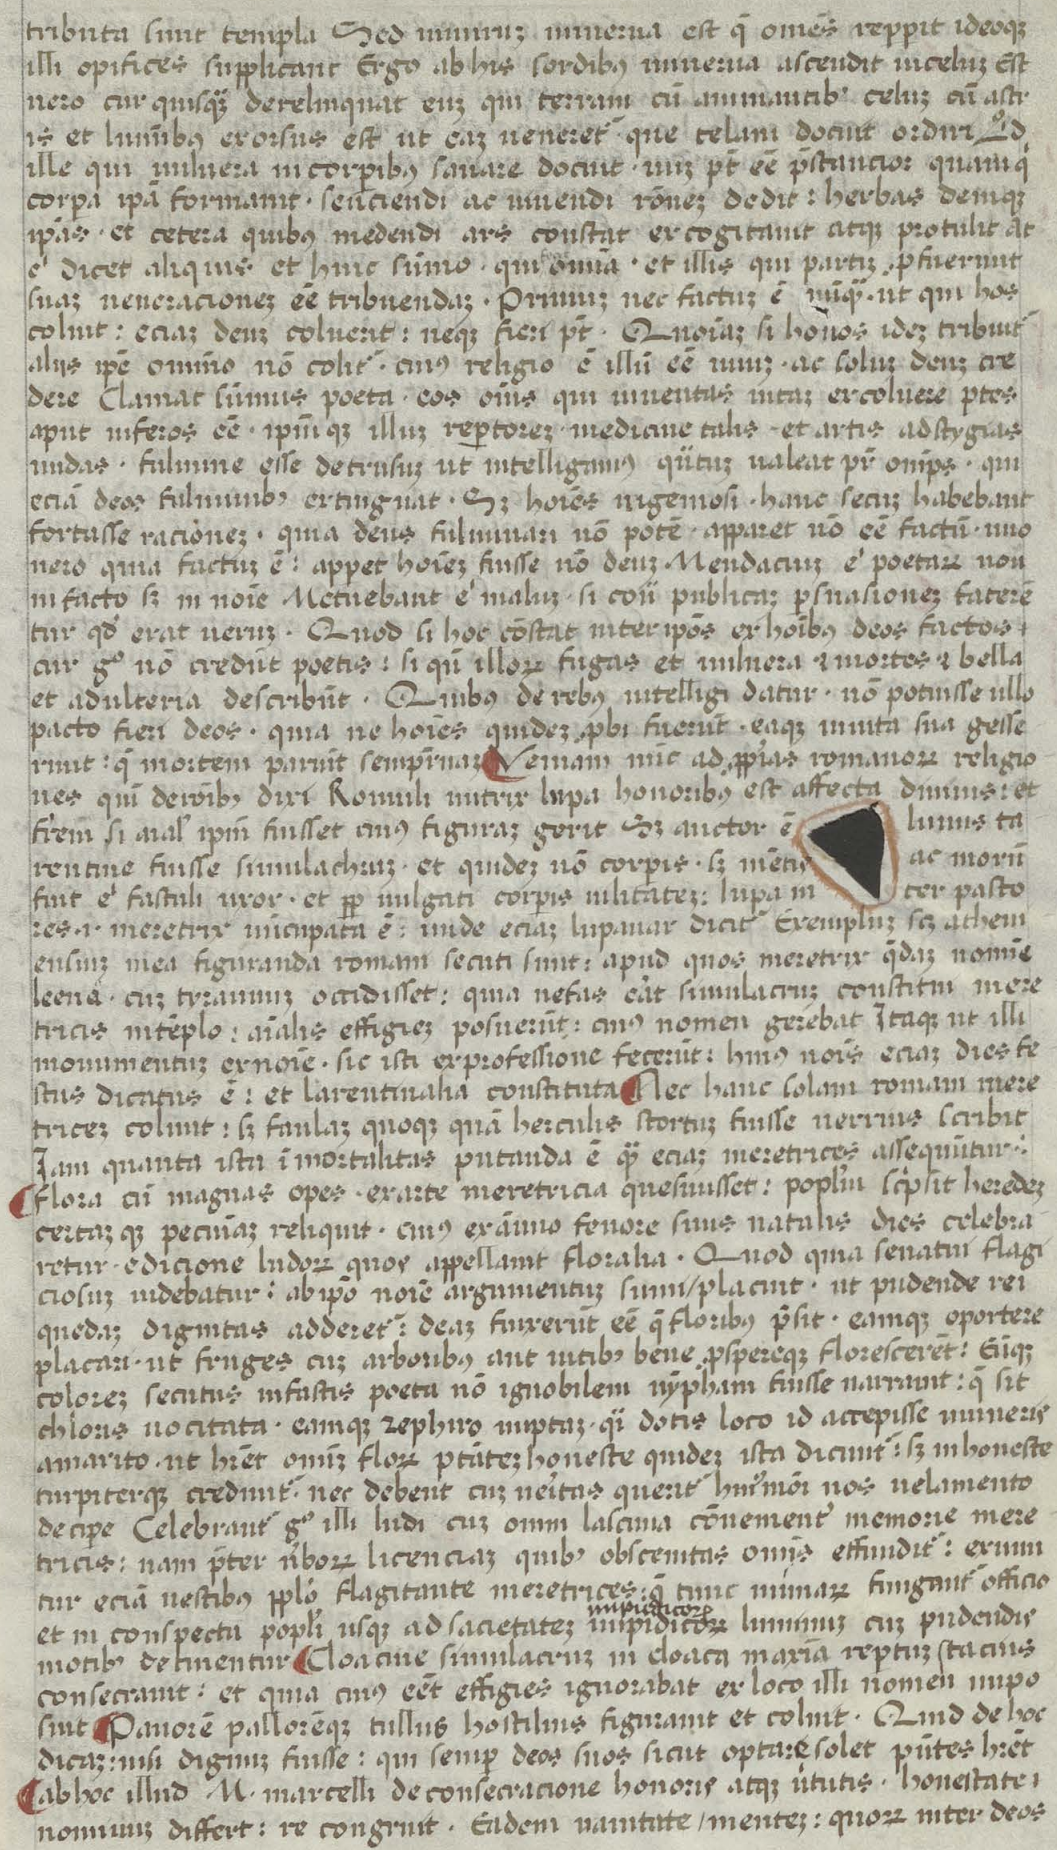 tributa sunt templa Sed nimiruz minerua est q̄ omēs reppit ideoqꝫ
illi opifices supplicant Ergo ab his sordibꝰ minerua ascendit in celuz Est
uero cur quisqᷓ derelinquat euz qui terram cū animantibꝰ celuz cū astr
is et luminibꝰ exorsus est ut eaz ueneret᷑ que telam docuit ordiri Qͦd
ille qui uulnera in corporibꝰ sanare docuit · nuz pt̄ eē p̄stancior quam qͥ
corpa ipā formauit · senciendi ac uiuendi rōnez dedit : herbas deniqꝫ
ipās · et cetera quibꝰ medendi ars constat excogitauit atqꝫ protulit At
e͛ dicet aliquis et huic sūmo · qui omīa · et illis qui partiz ꝓfuerunt
suaz ueneracionez eē tribuendaz · Primuz nec factuz ē nūqᷓ · ut qui hos
coluit : eciaz deuz coluerit : neqꝫ fieri pt̄ · Quoniaz si honos idez tribuit᷑
alijs ipē omnīo nō colit᷑ · cuiꝰ religio ē illū eē unuz · ac soluz deuz cre
dere Clamat sūmus poeta · eos oīns qui inuentas uitaz excoluere p̱tes
aput inferos eē · ipm̄qꝫ illuz rep̱torez · medicine talis · et artis ad stygias
undas · fulmine esse detrusuz ut intelligamꝰ qᷓtuz ualeat pr̄ omps · qui
eciā deos fulminibꝰ extinguat · Sꝫ hoīes ingeniosi · hanc secuz habebant
fortasse racionez · quia deus fulminari nō potē · apparet nō eē factū · imo
uero quia factuz ē : appet hoīez fuisse nō deuz · Mendaciuz e͛ poetaꝝ non
in facto sꝫ in noīe Metuebant e͛ maluz · si cōū publicaz p̱suasionez faterē
tur qd̓ erat ueruz · Quod si hoc cōstat inter ipōs ex hoībꝰ deos factos ·
cur gͦ nō credūt poetis : si qn̄ illoꝝ fugas et uulnera ⁊ mortes ⁊ bella
et adulteria describūt · Quibꝰ de rebꝰ intelligi datur · nō potuisse ullo
pacto fieri deos · quia ne hoīes quidez ꝓbi fuerūt · eaqꝫ in uita sua gesse
runt : q̄ mortem pariūt sempit̄naz Veniam nūc ad ꝓpͥas romanoꝝ religio
nes quī de cōībꝰ dixi Romuli nutrix lupa honoribꝰ est affecta diuinis : et
ferēm si aīal ipm̄ fuisset cuiꝰ figuraz gerit Sꝫ auctor ē liuius ta
rentine fuisse simulachruz · et quidez nō corpis · sꝫ mētis ac morū
fuit e͛ faustuli uxor · et ꝓp uulgati corpis uilitatez : lupa in ter pasto
res · i · meretrix nūcupata ē : unde eciaz lupanar dicit᷑ Exempluz scꝫ atheni
ensiuz in ea figuranda romani secuti sunt : apud quos meretrix q̄daz nomīe
leena · cuz tyrannuz occidisset : quia nefas eāt simulacruz constitui mere
tricis in tēplo : aīalis effigiez posuerūt : cuiꝰ nomen gerebat Itaqꝫ ut illi
monumentuz ex noīe · sic isti ex professione fecerūt : huiꝰ noīs eciaz dies fe
stus dicatus ē : et larentinalia constituta Nec hanc solam romani mere
tricez colunt : sꝫ faulaz quoqꝫ quā herculis scortuz fuisse uerrius scribit
Iam quanta ista īmortalitas putanda ē qᷓ eciaz meretrices assequūtur :
flora cū magnas opes · ex arte meretricia quesiuisset : popl'm sc͛psit heredez
certazqꝫ pecūiaz reliquit · cuiꝰ ex ānuo fenore suus natalis dies celebra
retur · edicione ludoꝝ quos appellant floralia · Quod quia senatui flagi
ciosuz uidebatur : ab ipō noīe argumentuz sumi / placuit · ut pudende rei
quedaz dignitas adderet᷑ : deaz finxerūt eē q̄ floribꝰ p̄sit · eamqꝫ oportere
placari · ut fruges cuz arboribꝰ aut uitibꝰ bene ꝓspereqꝫ florescerēt : Eūqꝫ
colorez secutus in fastis poeta nō ignobilem nȳpham fuisse narrauit : q̄ sit
chloris uocitata · eamqꝫ zephiro nuptaz · qᷓi dotis loco id accepisse muneris
a marito · ut hrēt omīz floꝝ ptātez honeste quidez ista dicunt᷑ : sꝫ inhoneste
turpiterqꝫ credunt᷑ · nec debent cuz ueritas querit᷑ huiꝰmōi nos uelamento
decipe Celebrant᷑ gͦ illi ludi cuz omni lasciuia cōuenient᷑ memorie mere
tricis : nam p̄ter ūboꝝ licenciaz quibꝰ obscenitas omīs effundit᷑ : exuun
tur eciā uestibꝰ pplō flagitante meretrices : q̄ tunc mimaꝝ fungunt᷑ officio
impudicoꝝ
et in conspectu popli usqꝫ ad sacietatez impidicoꝝ luminuz cuz pudendis
motibꝰ detinentur Cloacine simulacruz in cloaca maxīa rep̱tuz stacius
consecrauit : et quia cuiꝰ eēt effigies ignorabat ex loco illi nomen impo
suit Pauorē pallorēqꝫ tullus hostilius figurauit et coluit · Quid de hoc
dicaz : nisi dignuz fuisse : qui semp deos suos sicut optare solet pūtes hrēt
ab hoc illud M · marcelli de consecracione honoris atqꝫ ūtutis · honestate ·
nominuz differt : re congruit · Eadem uanitate / mentez : quoꝝ inter deos